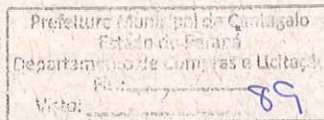 Prefeitura Municipal de Cantagalo
Estado do Paraná
Departamento de Compras e Licitação
Visto: 89